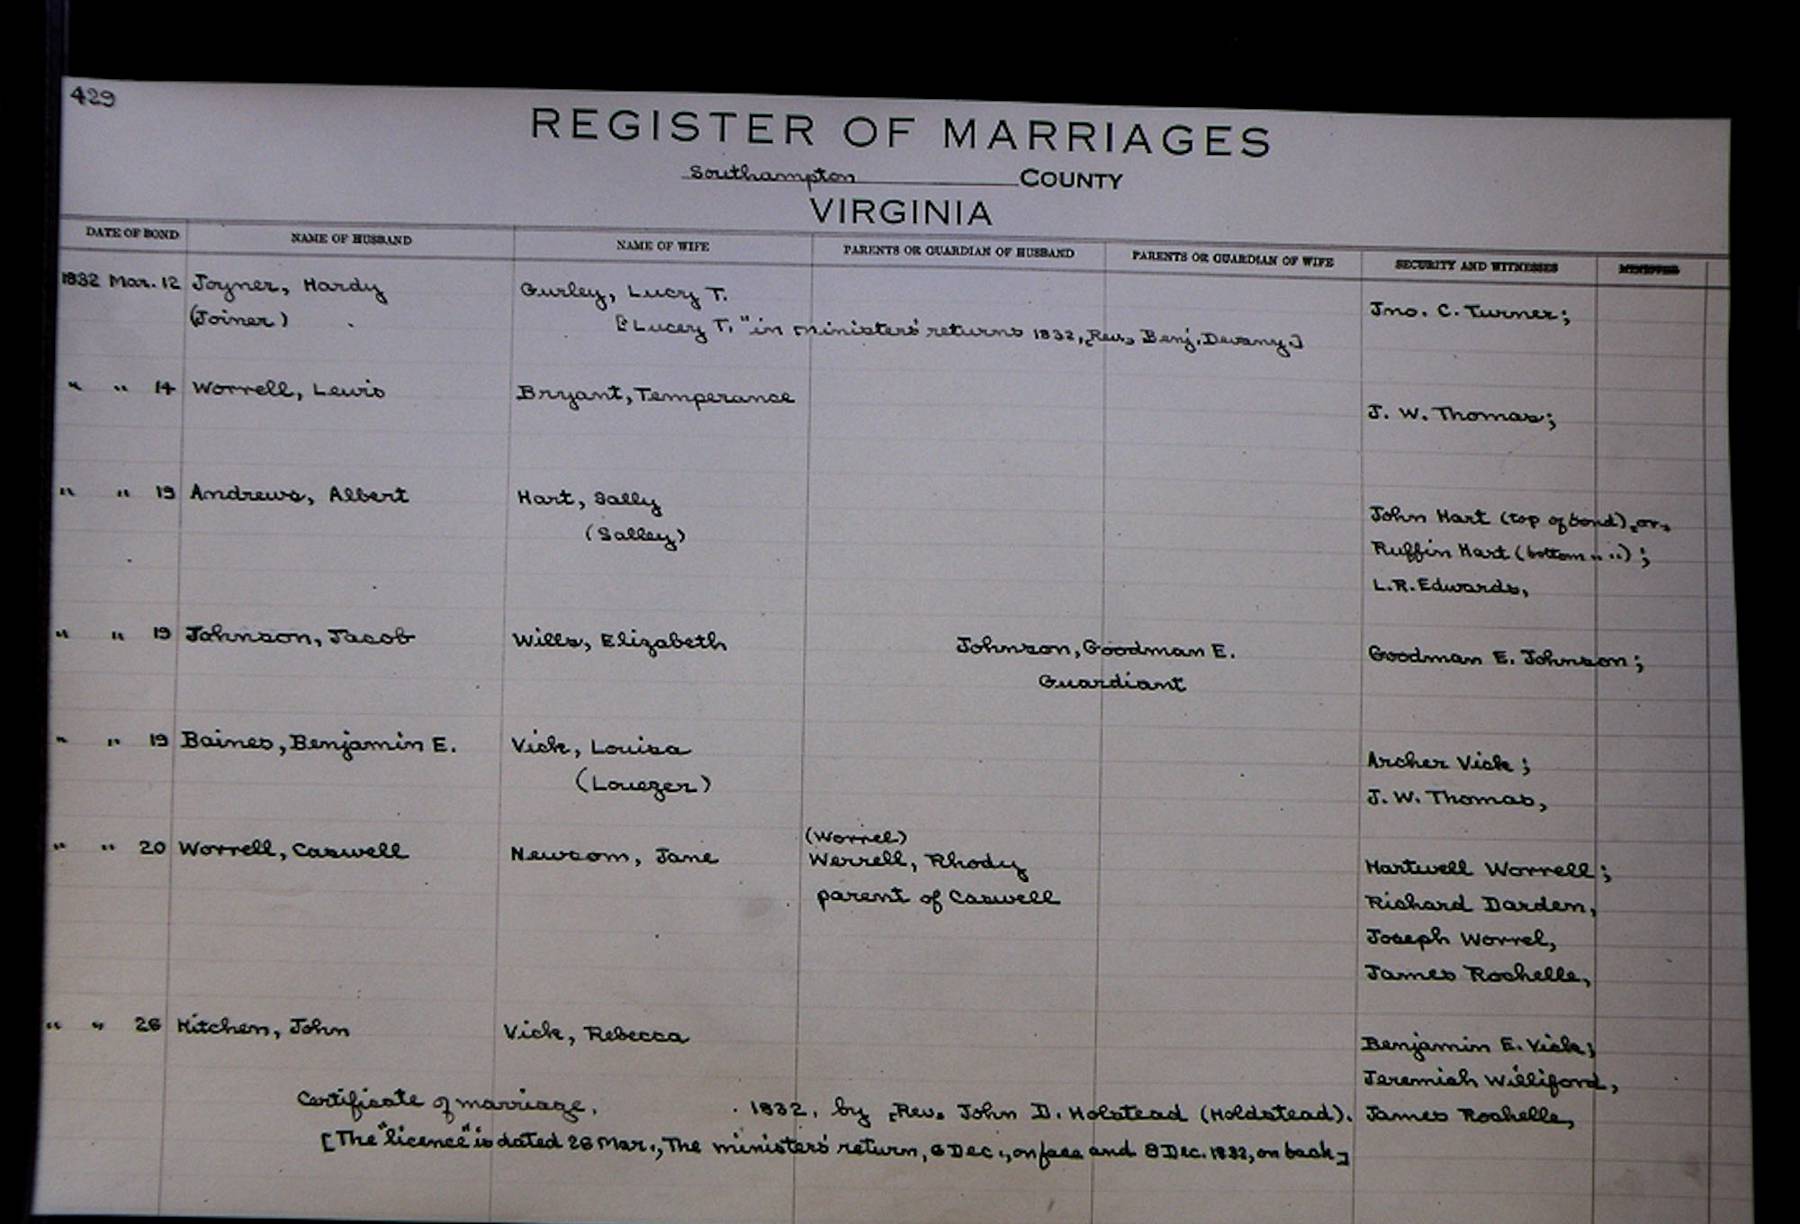 429
REGISTER OF MARRIAGES
Southampton COUNTY
VIRGINIA
DATE OF BOND NAME OF HUSBAND NAME OF WIFE PARENTS OR GUARDIAN OF HUSBAND PARENTS OR GUARDIAN OF WIFE SECURITY AND WITNESSES
1832 Mar. 12 Joyner, Hardy Gurley, Lucy T. Jno. C. Turner;
(Joiner) ["Lucey T." in ministers' returns 1832, [Rev.] Benj. Devany.]
" " 14 Worrell, Lewis Bryant, Temperance J. W. Thomas;
" " 19 Andrews, Albert Hart, Sally John Hart (top of bond), [or]
(Salley) Ruffin Hart (bottom " ");
L.R. Edwards,
" " 19 Johnson, Jacob Wills, Elizabeth Johnson, Goodman E. Goodman E. Johnson;
Guardiant
" " 19 Baines, Benjamin E. Vick, Louisa Archer Vick;
(Louezer) J. W. Thomas,
(Worrel)
" " 20 Worrell, Caswell Newsom, Jane Werrell, Rhody Hartwell Worrell;
parent of Caswell Richard Darden,
Joseph Worrel,
James Rochelle,
" " 26 Kitchen, John Vick, Rebecca Benjamin E. Vick;
Jeremiah Williford,
Certificate of marriage, 1832, by [Rev.] John D. Holstead (Holdstead). James Rochelle,
[The "licence" is dated 26 Mar., The ministers' return, 6 Dec., on face and 8 Dec. 1832, on back]